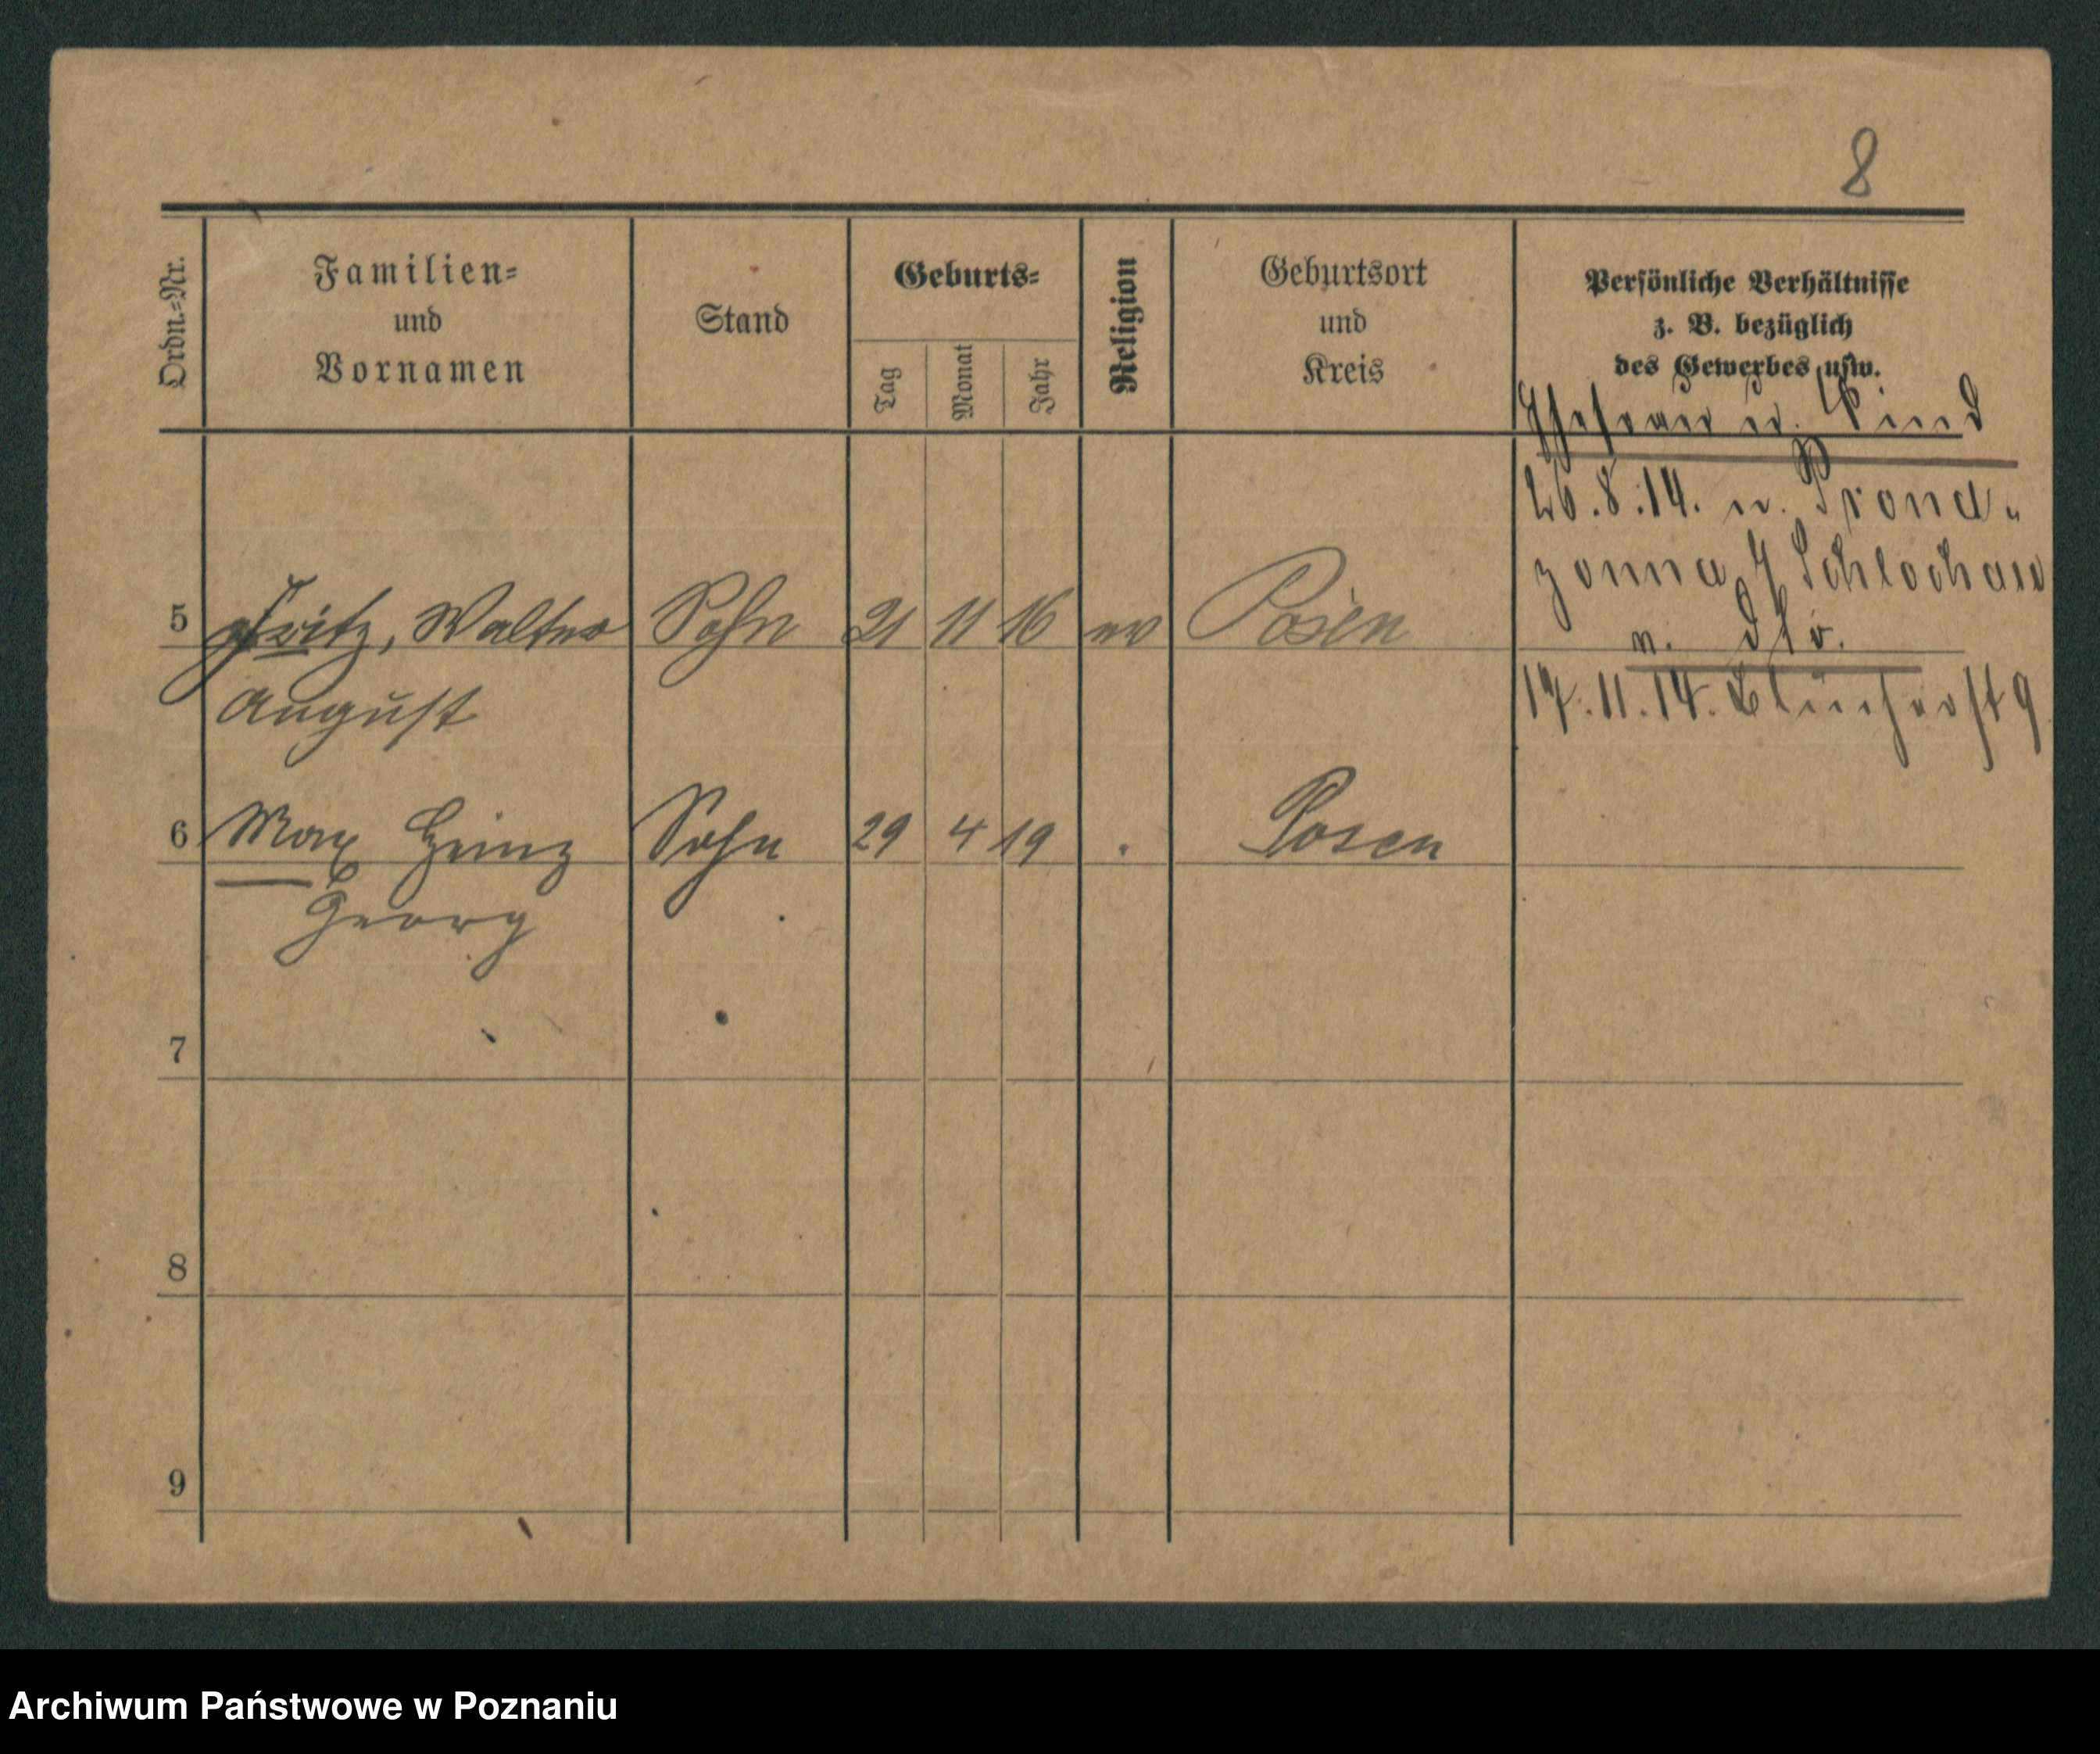 8
Ordn.=Nr.
Familien=
und
Vornamen
Stand
Geburts=
Tag
Monat
Jahr
Religion
Geburtsort
und
Kreis
Persönliche Verhältnisse
z. B. bezüglich
des Gewerbes usw.
Ehefrau u. Kind
26.8.14. n. Prond-
zonna / Schlochau
v. dto.
17.11.14. Blücherst 9
5 Fritz, Walter Sohn 21 11 16 ev Posen
August
6 Max Heinz Sohn 29 4 19 . Posen
Georg
7
8
9
Archiwum Państwowe w Poznaniu